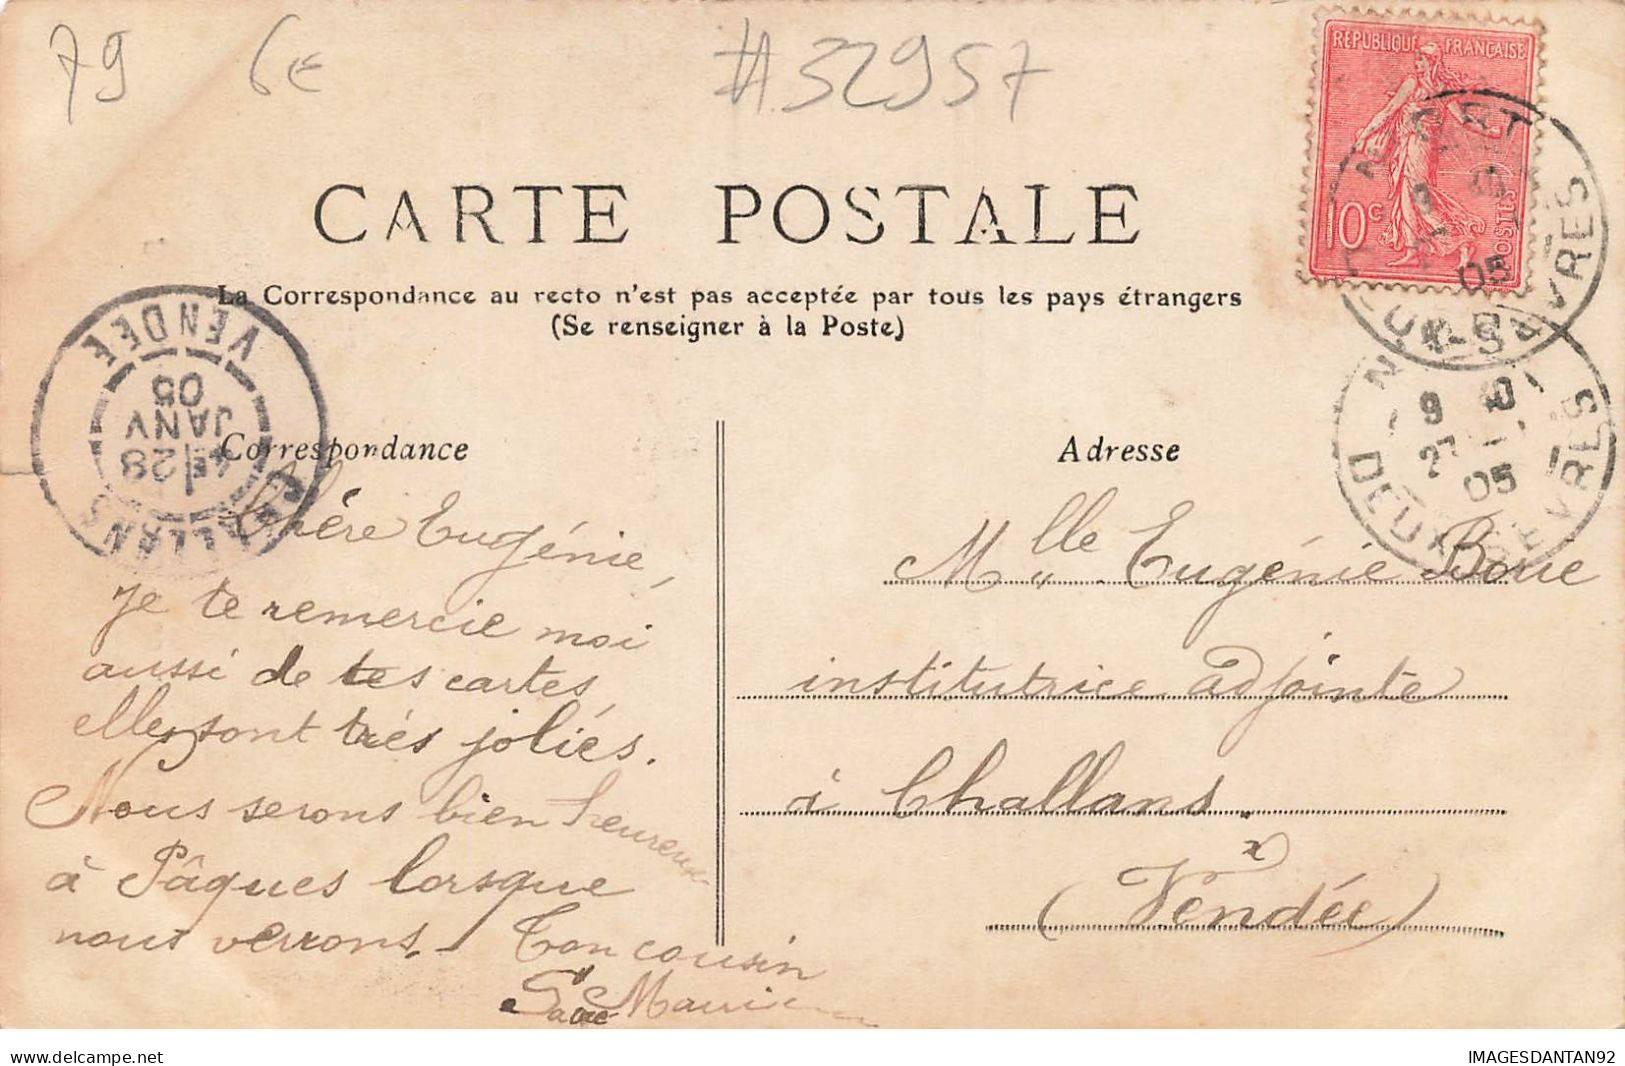 79 6€ #32957
RÉPUBLIQUE FRANÇAISE
10c POSTES
NIORT
05
DEUX-SÈVRES
CARTE POSTALE
La Correspondance au recto n'est pas acceptée par tous les pays étrangers
(Se renseigner à la Poste)
CHALLANS
4E 28
JANV
05
VENDÉE
9 40
27 - 1
05
DEUX-SEVRES
Correspondance
Chère Eugénie,
Je te remercie moi
aussi de tes cartes
elles sont très joliés.
Nous serons bien heureux
à Pâques lorsque
nous verrons.
Ton cousin
Adresse
Mlle Eugénie Boue
institutrice adjointe
à Challans
(Vendée)
IMAGESDANTAN92
delcampe.net